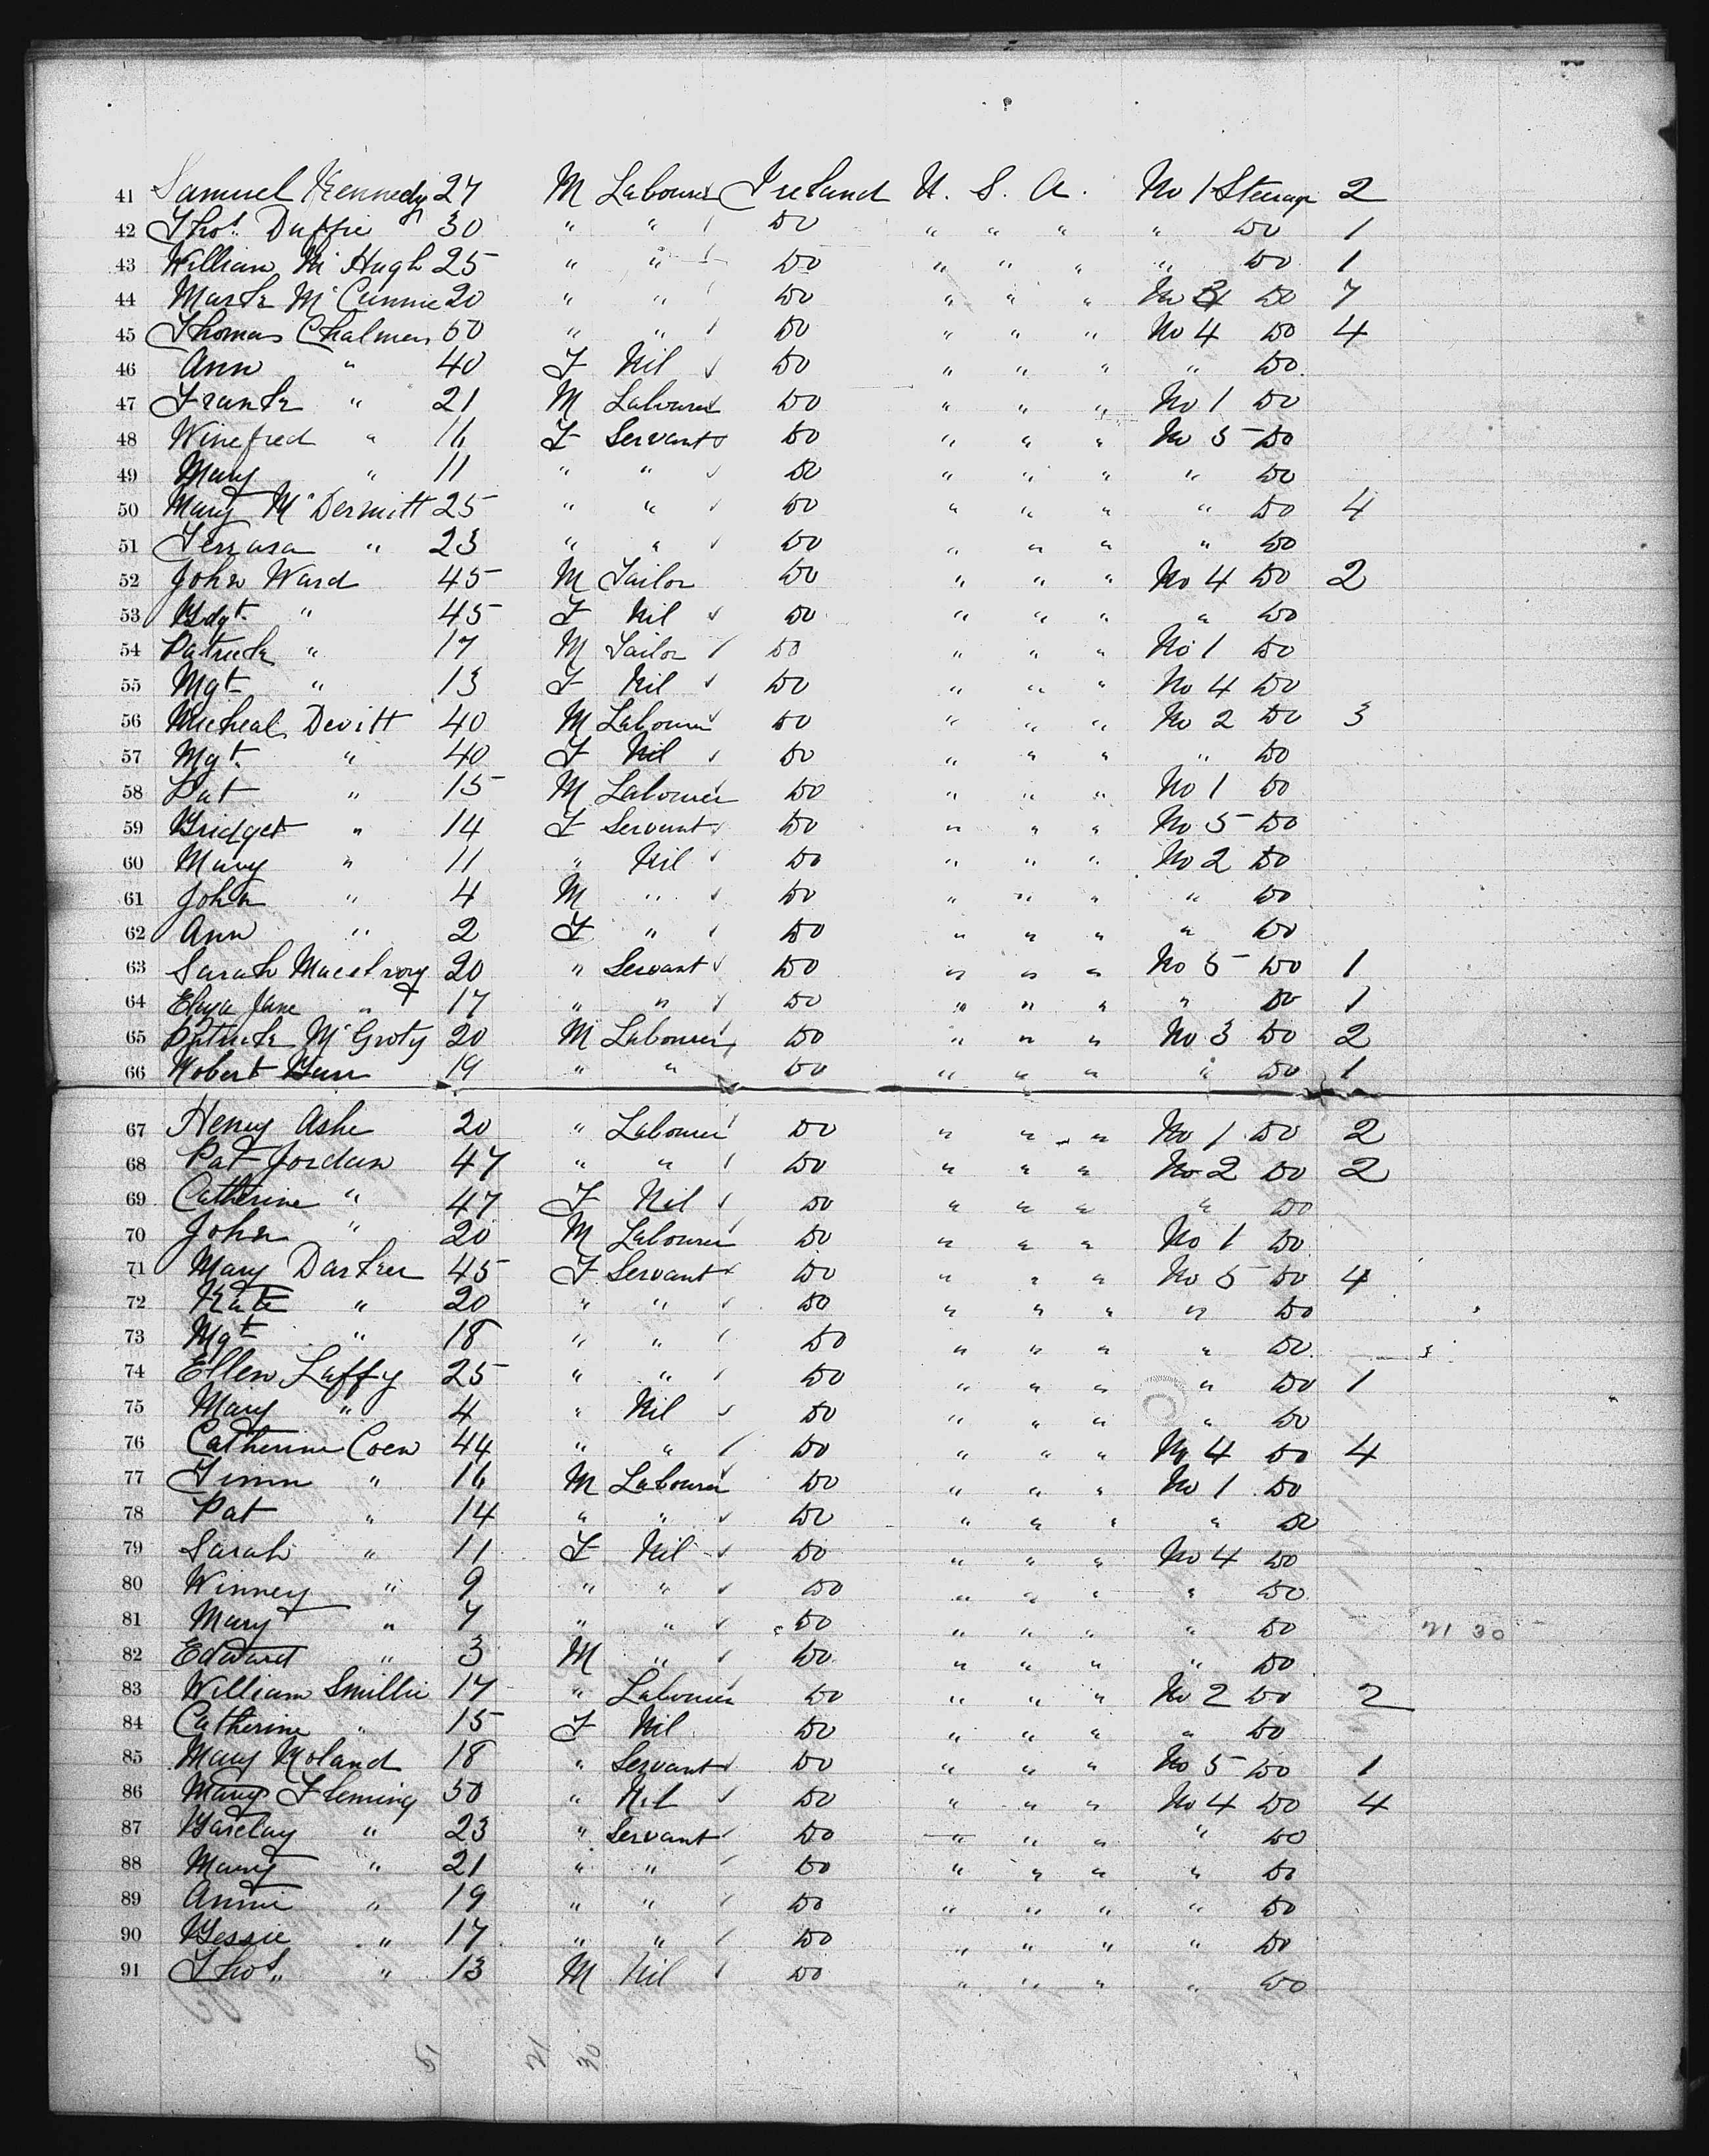 41 Samuel Kennedy 27 M Labourer Ireland U. S. A. No 1 Steerage 2
42 Thos. Duffie 30 " " Do " " " " Do 1
43 William McHugh 25 " " Do " " " " Do 1
44 Mark McCunnie 20 " " Do " " " No Do 7
45 Thomas Chalmers 50 " " Do " " " No 4 Do 4
46 Ann " 40 F Nil Do " " " " Do
47 Frank " 21 M Labourer Do " " " No 1 Do
48 Winefred " 16 F Servant Do " " " No 5 Do
49 Mary " 11 " " Do " " " " Do
50 Mary McDermitt 25 " " Do " " " " Do 4
51 " 23 " " Do " " " " Do
52 John Ward 45 M Tailor Do " " " No 4 Do 2
53 Bdgt. " 45 F Nil Do " " " " Do
54 Patrick " 17 M Tailor Do " " " No 1 Do
55 Mgt " 13 F Nil Do " " " No 4 Do
56 Micheal Devitt 40 M Labourer Do " " " No 2 Do 3
57 Mgt. " 40 F Nil Do " " " " Do
58 Pat " 15 M Labourer Do " " " No 1 Do
59 Bridget " 14 F Servant Do " " " No 5 Do
60 Mary " 11 " Nil Do " " " No 2 Do
61 John " 4 M " Do " " " " Do
62 Ann " 2 F " Do " " " " Do
63 Sarah 20 " Servant Do " " " No 5 Do 1
64 Eliza Jane " 17 " " Do " " " " Do 1
65 Patrick McGroty 20 M Labourer Do " " " No 3 Do 2
66 Robert 19 " " Do " " " " Do 1
67 Henry Ashe 20 " Labourer Do " " " No 1 Do 2
68 Pat Jordan 47 " " Do " " " No 2 Do 2
69 Catherine " 47 F Nil Do " " " " Do
70 John " 20 M Labourer Do " " " No 1 Do
71 Mary Darker 45 F Servant Do " " " No 5 Do 4
72 Kate " 20 " " Do " " " " Do
73 Mgt " 18 " " Do " " " " Do
74 Ellen Laffy 25 " " Do " " " " Do 1
75 Mary " 4 " Nil Do " " " " Do
76 Catherine Coen 44 " " Do " " " No 4 Do 4
77 Timn " 16 M Labourer Do " " " No 1 Do
78 Pat " 14 " " Do " " " " Do
79 Sarah " 11 F Nil Do " " " No 4 Do
80 Winney " 9 " " Do " " " " Do
81 Mary " 7 " " Do " " " " Do 21 30
82 Edward " 3 M " Do " " " " Do
83 William Smillie 17 " Labourer Do " " " No 2 Do 2
84 Catherine " 15 F Nil Do " " " " Do
85 Mary Noland 18 " Servant Do " " " No 5 Do 1
86 Mary Fleming 50 " Nil Do " " " No 4 Do 4
87 Barclay " 23 " Servant Do " " " " Do
88 Mary " 21 " " Do " " " " Do
89 Annie " 19 " " Do " " " " Do
90 Bessie " 17 " " Do " " " " Do
91 Thos. " 13 M Nil Do " " " " Do
51 21 30